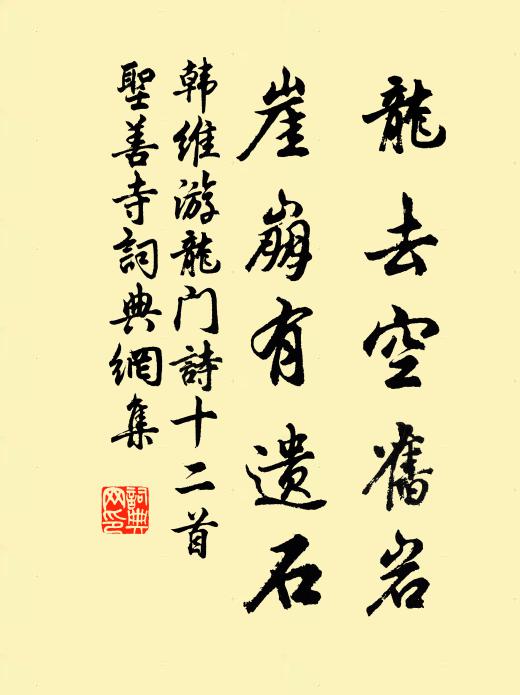 龍去空舊岩
崖崩有遗石
韩维游龍门詩十二首
聖善寺詞典網集
詞典
网印